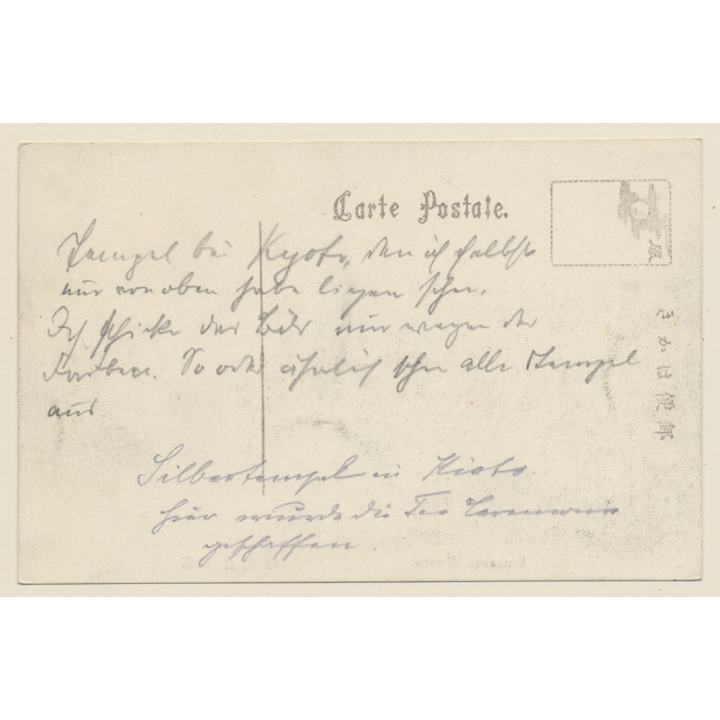 Carte Postale.
Tempel bei Kyoto, den ich selbst
nur von oben habe liegen sehen.
Ich schicke das Bild nur wegen der
Farben. So oder ähnlich sehen alle Tempel
aus.
Silbertempel in Kioto.
hier wurde die Tee Ceremonie
geschaffen.
郵便はかき